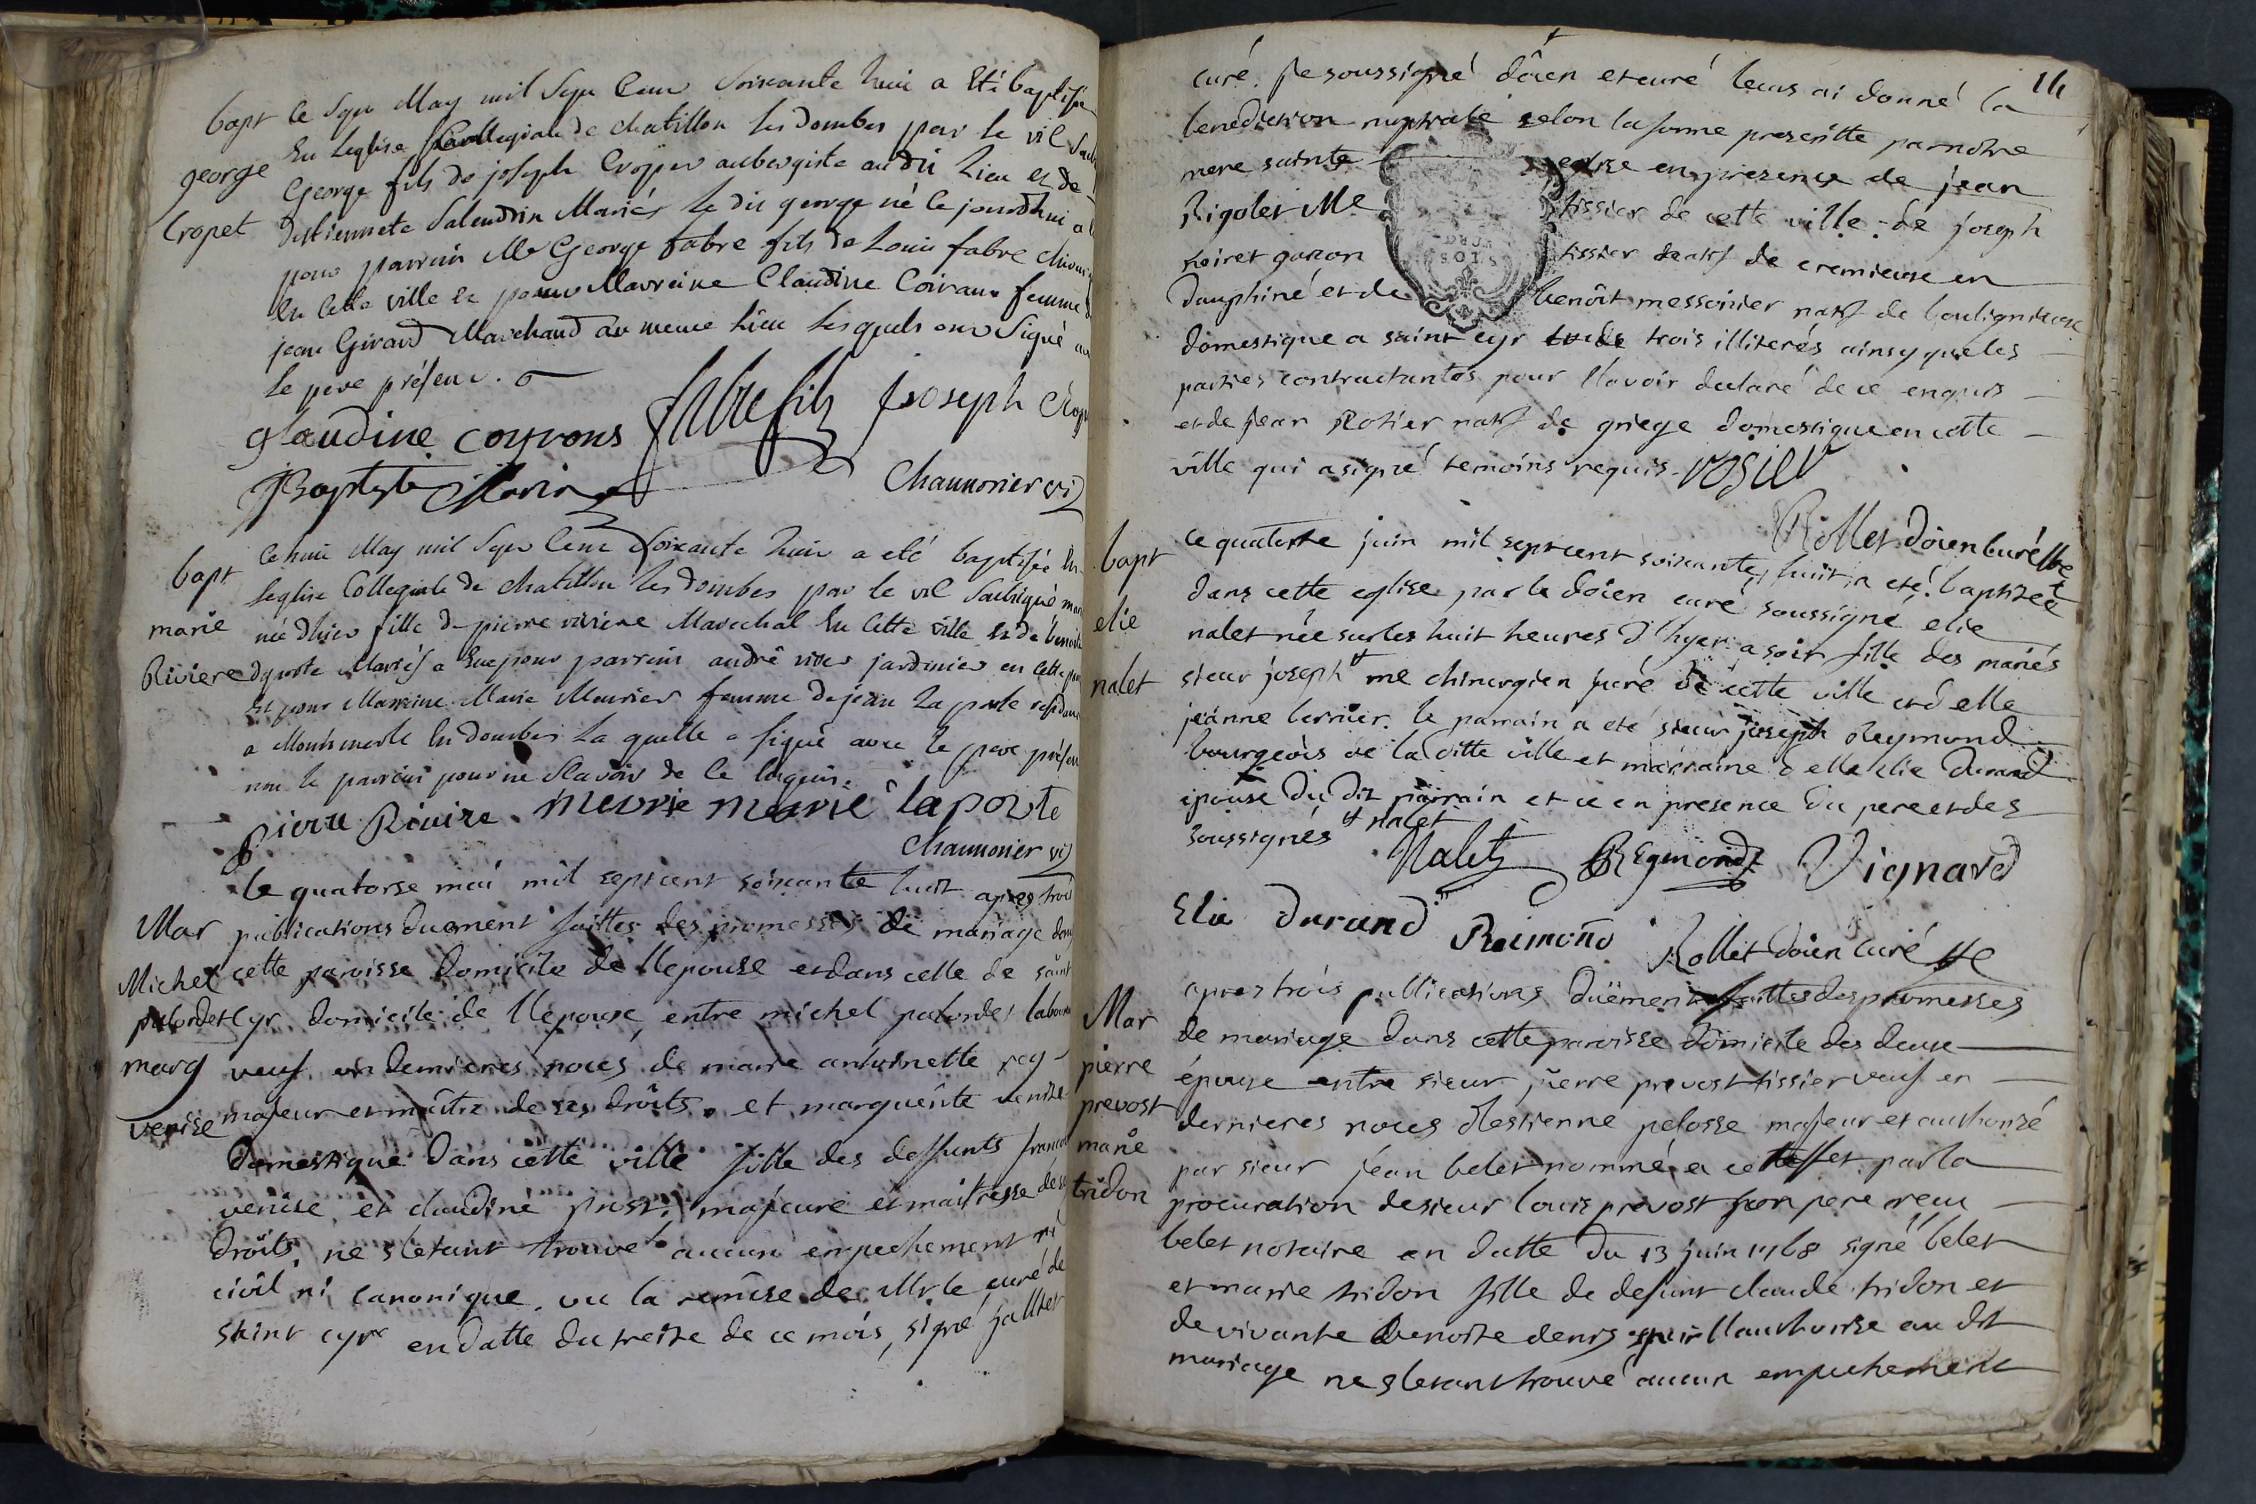 bapt
george
Cropet
le sept May mil Sept Cent Soixante huit a Eté baptisé
En Leglise Collegiale de chatillon les dombes par le vic
George fils de joseph Croppet aubergiste audit Lieu et de
Mariés le dit george né le jourdhui a
pour parrain Mr George fabre fils de Louis fabre
En Cette ville et pour Marreine Claudine Coiraux femme
jean Girard Marchand du meme Lieu Lesquels ont Signé
le pere présent.
glaudine coyrons fabre fils joseph
Baptiste
Chaunonier vi
bapt
marie
Riviere
le huit May mil Sept Cent Soixante huit a eté baptisée En
leglise Collegiale de chatillon les dombes par le vic Soubsigné
née dhier fille de pierre riviere Marechal En Cette ville et de
Mariés a Eu pour parrain andré jardinier en cette
Et pour Marreine Marie Meurier femme de jean La porte
a Montmerle En dombes La quelle a signé avec le pere présent
non le parrain pour ne Scavoir de Ce Enquis.
pierre Riviere meurie marie laporte
Chaunonier vi
Mar
Michel
palordet
marg
venise
le quatorse mai mil sept cent soixante huit apres trois
publications duement faittes des promesses de mariage dans
cette paroisse domicile de llepouse et dans celle de saint
Cyr domicile de llepoux, entre michel palordet
veuf en dernieres noces de marie antoinette rey
majeur et maître de ses droits. et marguerite venise
domestique dans cette ville fille des deffunts francois
venise et claudine prost, majeure et maitresse de ses
droits, ne sletant trouvé aucun empechement ni
civil ni canonique. vu la remise de Mr le curé de
saint cyr en datte du treize de ce mois, signé
14
curé. je soussigné dôien et curé leurs ai donné la
benediction nuptiale selon la forme prescritte par notre
mere sainte eglise en presence de jean
Rigolet Me tissier de cette ville de joseph
noiret garçon tissier natif de cremieux en
Dauphiné et de benôit messonier natif de
domestique a saint cyr trois illiterés ainsy que les
parties contractantes pour llavoir declaré de ce enquis
et de jean Rosier natif de griege domestique en cette
ville qui a signé temoins requis. rosier
Rollet dôien curé
bapt
elie
nalet
ce quatorse juin mil sept cent soixante huit, a eté baptisée
dans cette eglise par le dôien curé soussigné elie
nalet née sur les huit heures d'hyer a soir fille des mariés
sieur joseph me chirurgien juré de cette ville et delle
jeanne bernier. le parrain a eté sieur joseph Reymond
bourgeois de la ditte ville et marraine delle elie Durand
epouse du dit parrain et ce en presence du pere et des
soussignés nalet
Nalet Reymond Vignard
Elie durand Raimond Rollet dôien curé
Mar
pierre
prevost
marie
tridon
apres trois publications duëment faittes des promesses
de mariage dans cette paroisse domicile des deux
époux entre sieur pierre prevost tissier veuf en
dernieres noces dlestienne pelosse majeur et authorisé
par sieur jean belet nommé a cet effet par la
procuration de sieur louis prevost son pere recu
belet notaire en datte du 13 juin 1768 signé belet
et marie tridon fille de defunt claude tridon et
de vivante benoite denis qui llauthorise au dit
mariage ne sletant trouvé aucun empechement